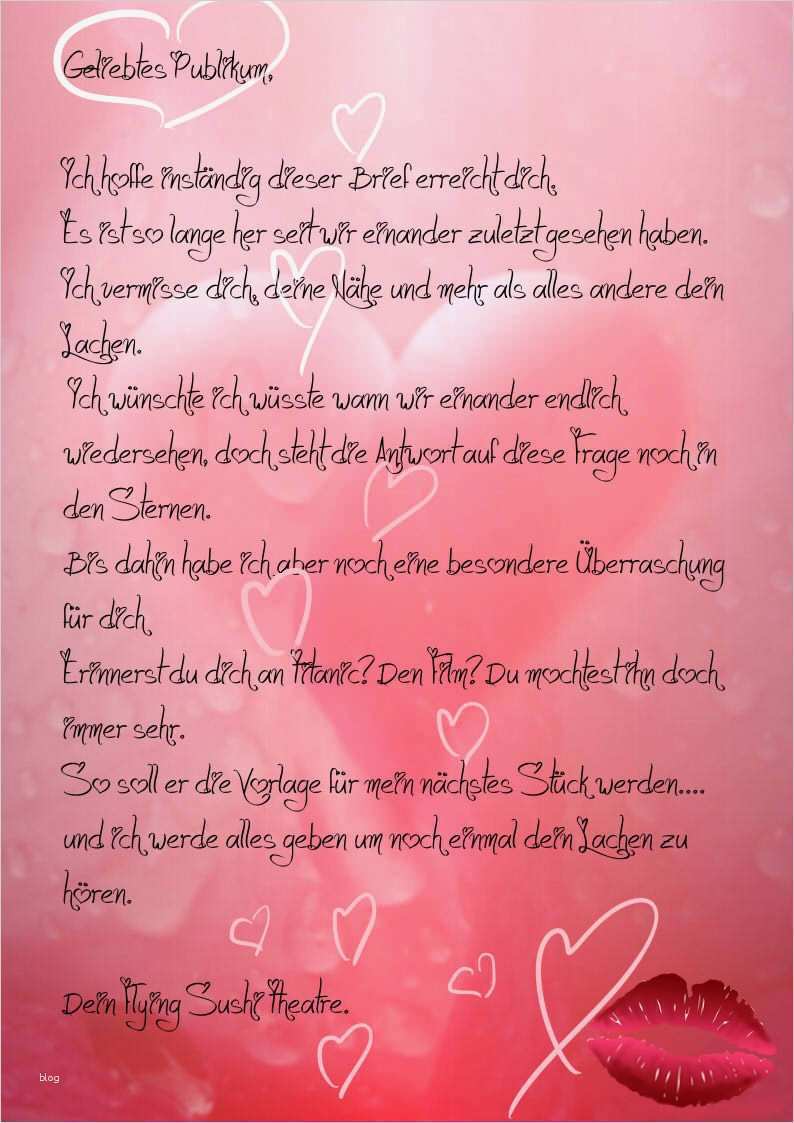 Geliebtes Publikum,
Ich hoffe inständig dieser Brief erreicht dich.
Es ist so lange her seit wir einander zuletzt gesehen haben.
Ich vermisse dich, deine Nähe und mehr als alles andere dein
Lachen.
Ich wünschte ich wüsste wann wir einander endlich
wiedersehen, doch steht die Antwort auf diese Frage noch in
den Sternen.
Bis dahin habe ich aber noch eine besondere Überraschung
für dich
Erinnerst du dich an Titanic? Den Film? Du mochtest ihn doch
immer sehr.
So soll er die Vorlage für mein nächstes Stück werden....
und ich werde alles geben um noch einmal dein Lachen zu
hören.
Dein Flying Sushi Theatre.
blog